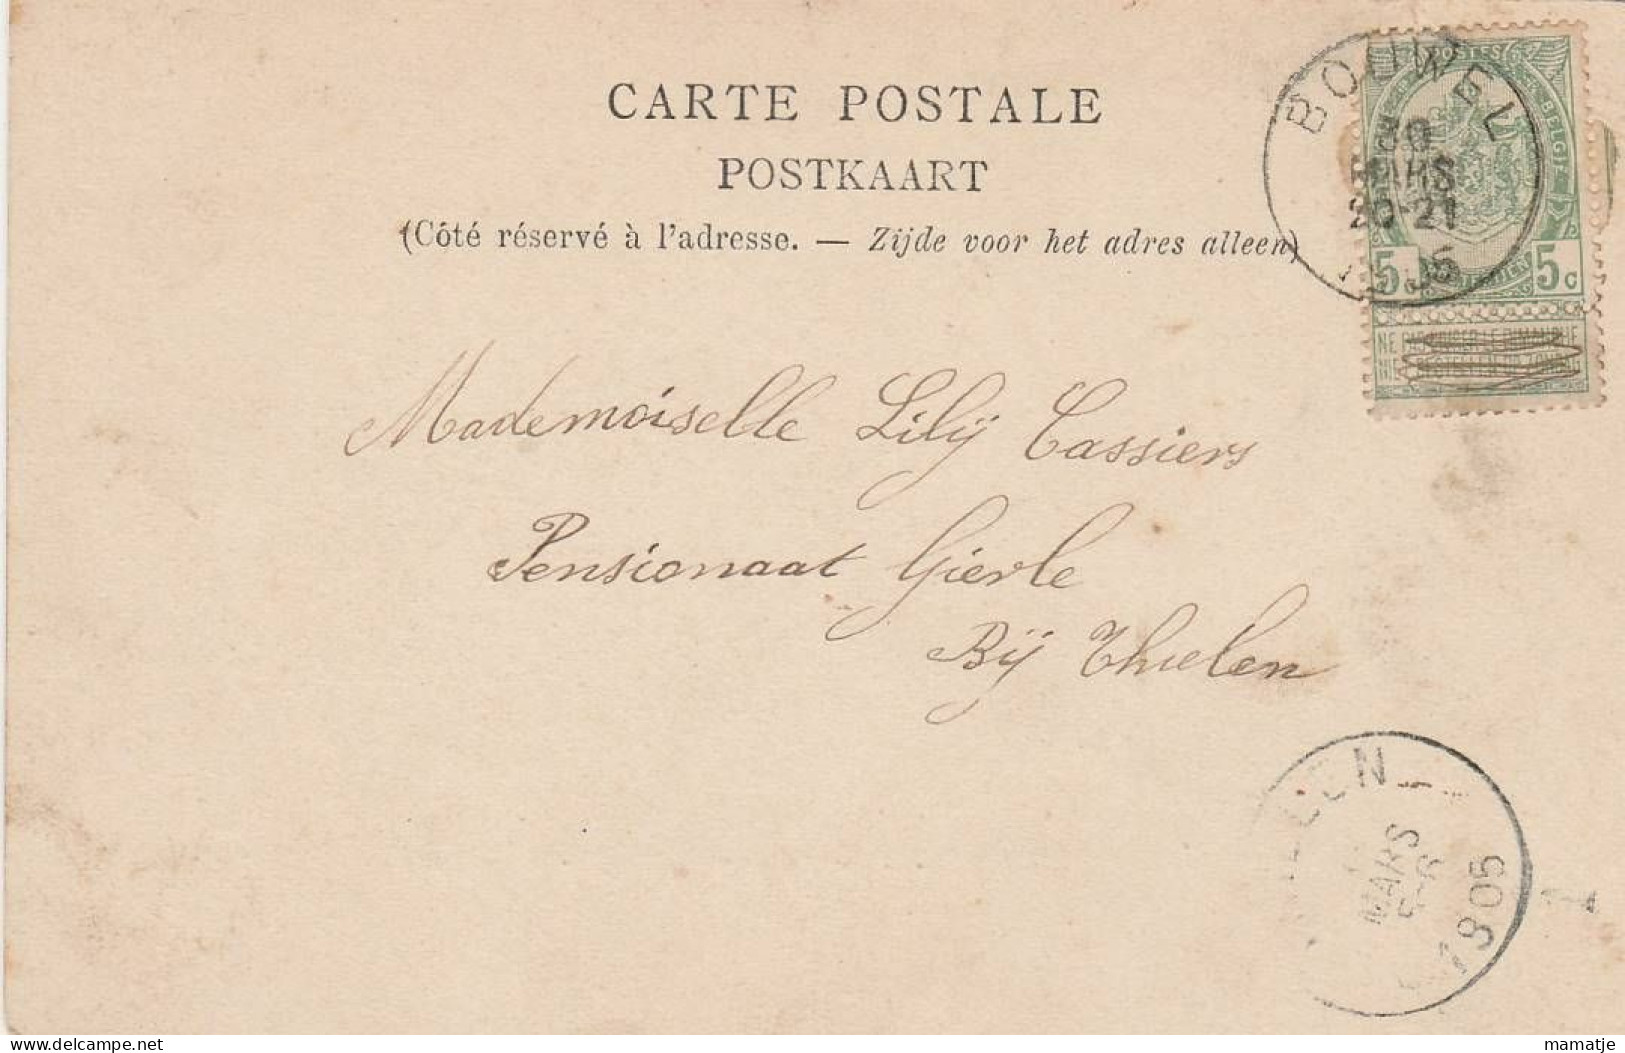 CARTE POSTALE
POSTKAART
(Côté réservé à l'adresse. — Zijde voor het adres alleen)
BOUWEL
30
MARS
20-21
POSTES
BELGIE
5 c
5 c
NE PAS LIVRER LE DIMANCHE
NIET BESTELLEN OP ZONDAG
Mademoiselle Lilÿ Cassiers
Pensionaat Gierle
Bÿ Thielen
MARS
5-6
1905
delcampe.net
mamatje